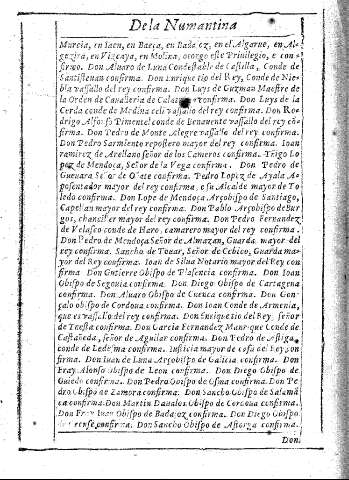 De la Numantina
Murcia, en Iaen, en Baeça, en Badajoz, en el Algarue, en Al-
gezira, en Vizcaya, en Molina, otorgo este Priuilegio, e con-
firmo. Don Aluaro de Luna Condestable de Castilla, Conde de
Santisteuan confirma. Don Enrique tio del Rey, Conde de Nie-
bla vassallo del rey confirma. Don Luys de Guzman Maestre de
la Orden de Caualleria de confirma. Don Luys de la
Cerda conde de Medina celi vassallo del rey confirma. Don Ro-
drigo Alfonso Pimentel conde de Benauente vassallo del rey cõ-
firma. Don Pedro de Monte Alegre vassallo del rey confirma.
Don Pedro Sarmiento repostero mayor del rey confirma. Ioan
ramirez de Arellano señor de los Cameros confirma. Iñigo Lo-
pez de Mendoça, Señor de la Vega confirma. Don Pedro de
Gueuara Señor de Oñate confirma. Pedro Lopez de Ayala A-
posentador mayor del rey confirma, e su Alcalde mayor de To-
ledo confirma. Don Lope de Mendoça Arçobispo de Santiago,
Capellan mayor del rey confirma. Don Pablo Arçobispo de Bur
gos, chanciller mayor del rey confirma. Don Pedro Fernandez
de Velasco conde de Haro, camarero mayor del rey confirma.
Don Pedro de Mendoça Señor de Almazan, Guarda mayor del
rey confirma. Sancho de Touar, Señor de Cebico, Guarda ma-
yor del Rey confirma. Ioan de Silua Notario mayor del Rey con
firma. Don Gutierre Obispo de Plasencia confirma. Don Ioan
Obispo de Segouia confirma. Don Diego Obispo de Cartagena
confirma. Don Aluaro Obispo de Cuenca confirma. Don Gon-
çalo obispo de Cordoua confirma. Don Ioan Conde de Armenia,
que es vassallo del rey confirma. Don Enrique tio del Rey, Señor
de confirma. Don Garcia Fernandez Manrique Conde de
Castañeda, señor de Aguilar confirma. Don Pedro de
conde de Ledesma confirma. Iusticia mayor de casa del Rey, con
firma. Don Iuan de Luna Arçobispo de Galicia confirma. Don
Fray Alonso Obispo de Leon confirma. Don Diego Obispo de
Ouiedo confirma. Don Pedro Obispo de Osma confirma. Don Pe
dro Obispo de Zamora confirma. Don Sancho Obispo de Salamã
ca confirma. Don Martin Obispo de Cordoua confirma.
Don Fray Iuan Obispo de Badajoz confirma. Don Diego Obispo
de Orense confirma. Don Sancho Obispo de Astorga confirma.
Don.